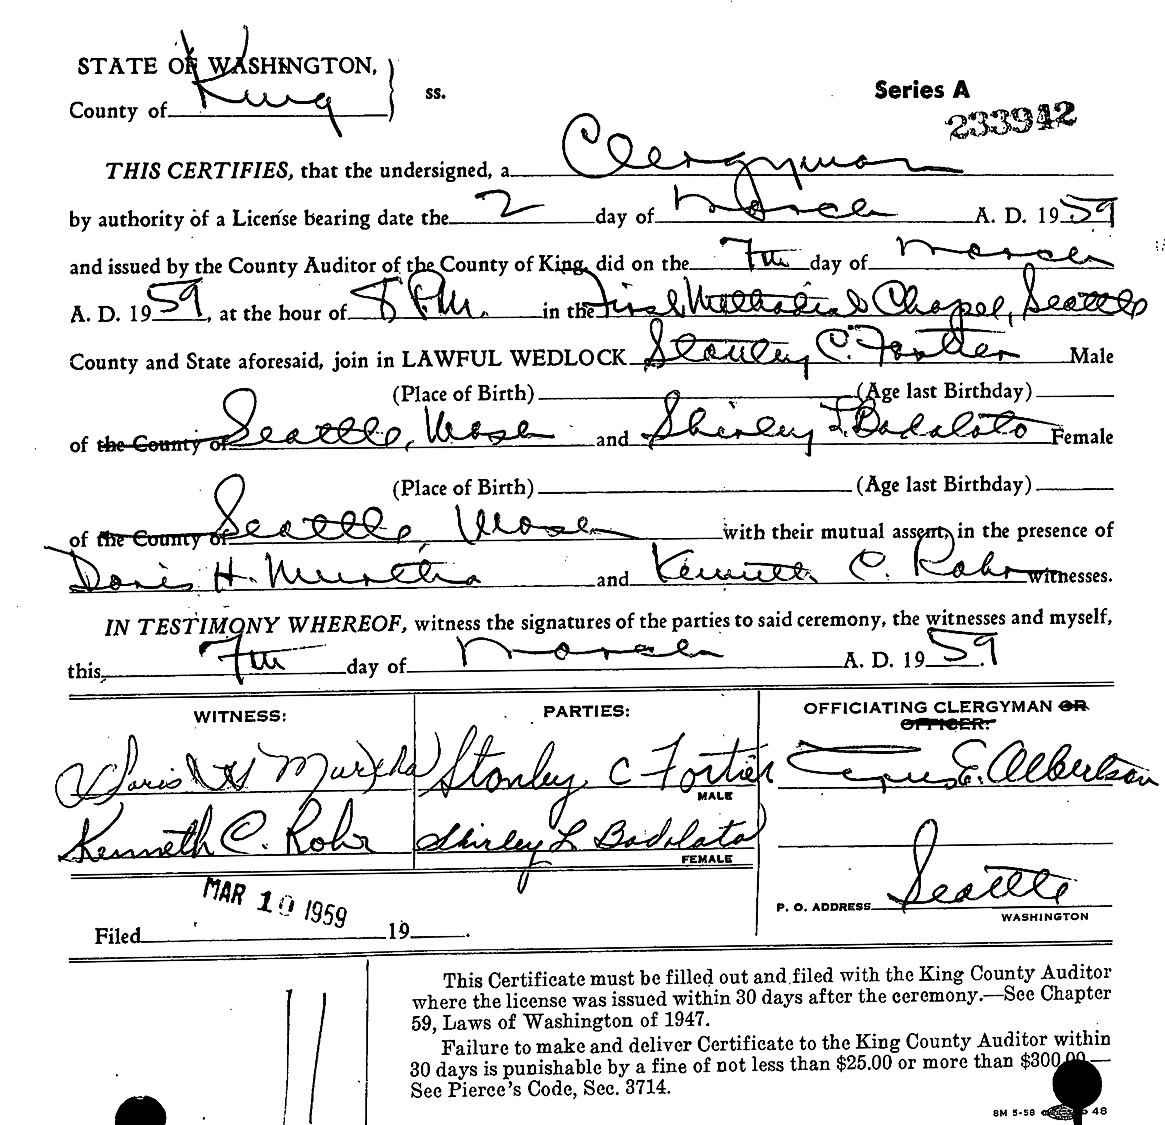 STATE OF WASHINGTON,
County of King ss.
Series A
233942
THIS CERTIFIES, that the undersigned, a Clergyman
by authority of a License bearing date the 2 day of March A. D. 1959
and issued by the County Auditor of the County of King, did on the 7th day of March
A. D. 1959, at the hour of 8 P.M. in the First Methodist Chapel, Seattle
County and State aforesaid, join in LAWFUL WEDLOCK Stanley C. Fortier Male
(Place of Birth) (Age last Birthday)
of the County of Seattle, Wash and Shirley L. Badalato Female
(Place of Birth) (Age last Birthday)
of the County of Seattle, Wash with their mutual assent, in the presence of
Doris H. Murtha and Kenneth C. Rohr witnesses.
IN TESTIMONY WHEREOF, witness the signatures of the parties to said ceremony, the witnesses and myself,
this 7th day of March A. D. 1959.
WITNESS: PARTIES: OFFICIATING CLERGYMAN OR
OFFICER:
Doris H Murtha Stanley C Fortier E. Albertson
MALE
Kenneth C. Rohr Shirley L Badalato
FEMALE
Seattle
P. O. ADDRESS
WASHINGTON
MAR 10 1959
Filed 19 .
This Certificate must be filled out and filed with the King County Auditor
where the license was issued within 30 days after the ceremony.—See Chapter
59, Laws of Washington of 1947.
Failure to make and deliver Certificate to the King County Auditor within
30 days is punishable by a fine of not less than $25.00 or more than $300.00—
See Pierce's Code, Sec. 3714.
8M 5-58 48